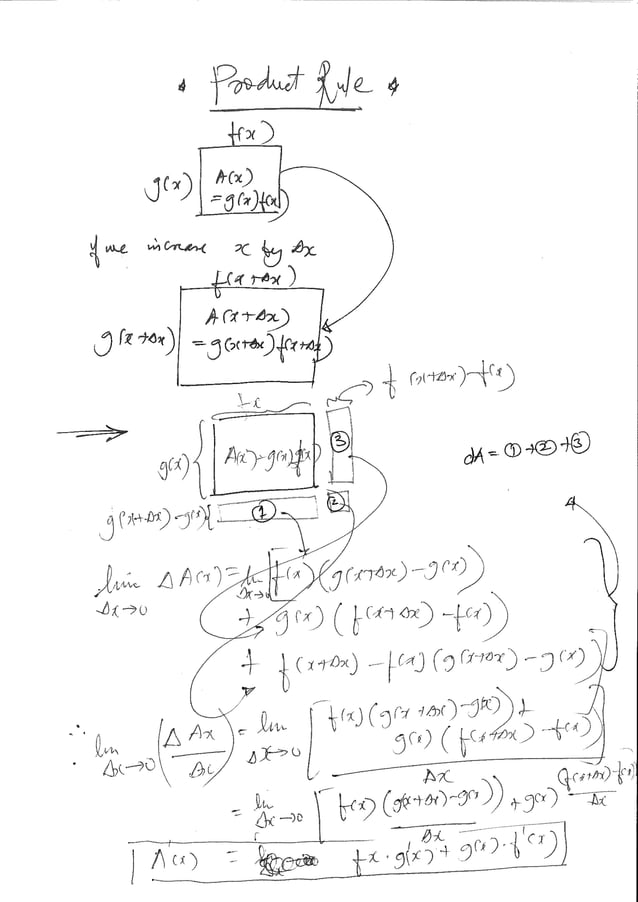 Product Rule
f(x)
g(x)
A(x)
= g(x) f(x)
if we increase x by Δx
f(x+Δx)
g(x+Δx)
A(x+Δx)
= g(x+Δx) f(x+Δx)
f(x+Δx)-f(x)
fx
g(x)
A(x) = g(x) f(x)
③
dA = ①+②+③
g(x+Δx)-g(x)
①
②
lim Δx→0 ΔA(x) = lim Δx→0 [f(x) (g(x+Δx)-g(x))
+ g(x) (f(x+Δx)-f(x))
+ f(x+Δx)-f(x) (g(x+Δx)-g(x))
∴ lim Δx→0 (ΔAx/Δx) = lim Δx→0 [f(x)(g(x+Δx)-g(x)) +
g(x) (f(x+Δx)-f(x))
Δx
= lim Δx→0 [f(x) (g(x+Δx)-g(x))/Δx + g(x) (f(x+Δx)-f(x))/Δx
A'(x) = fx · g'(x) + g(x) · f'(x)